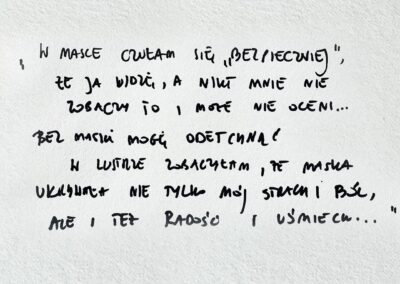 „W MASCE CZUŁAM SIĘ „BEZPIECZNIEJ",
ŻE JA WIDZĘ, A NIKT MNIE NIE
ZOBACZY TO I MOŻE NIE OCENI...
BEZ MASKI MOGĘ ODETCHNĄĆ
W LUSTRZE ZOBACZYŁAM, ŻE MASKA
UKRYWAŁA NIE TYLKO MÓJ STRACH I BÓL,
ALE I TEŻ RADOŚĆ I UŚMIECH..."